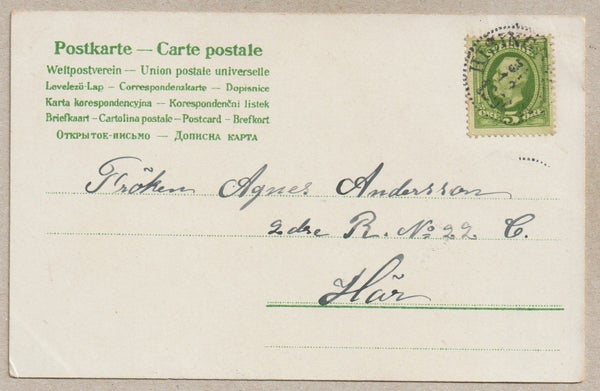 Postkarte — Carte postale
Weltpostverein — Union postale universelle
Levelező-Lap — Correspondenzkarte — Dopisnice
Karta korespondencyjna — Korespondenční listek
Briefkaart — Cartolina postale — Postcard — Brefkort
Открытое-письмо — Дописна карта
SVERIGE
5 ÖRE
Fröken Agnes Andersson
2dre R. No 22 C.
Här